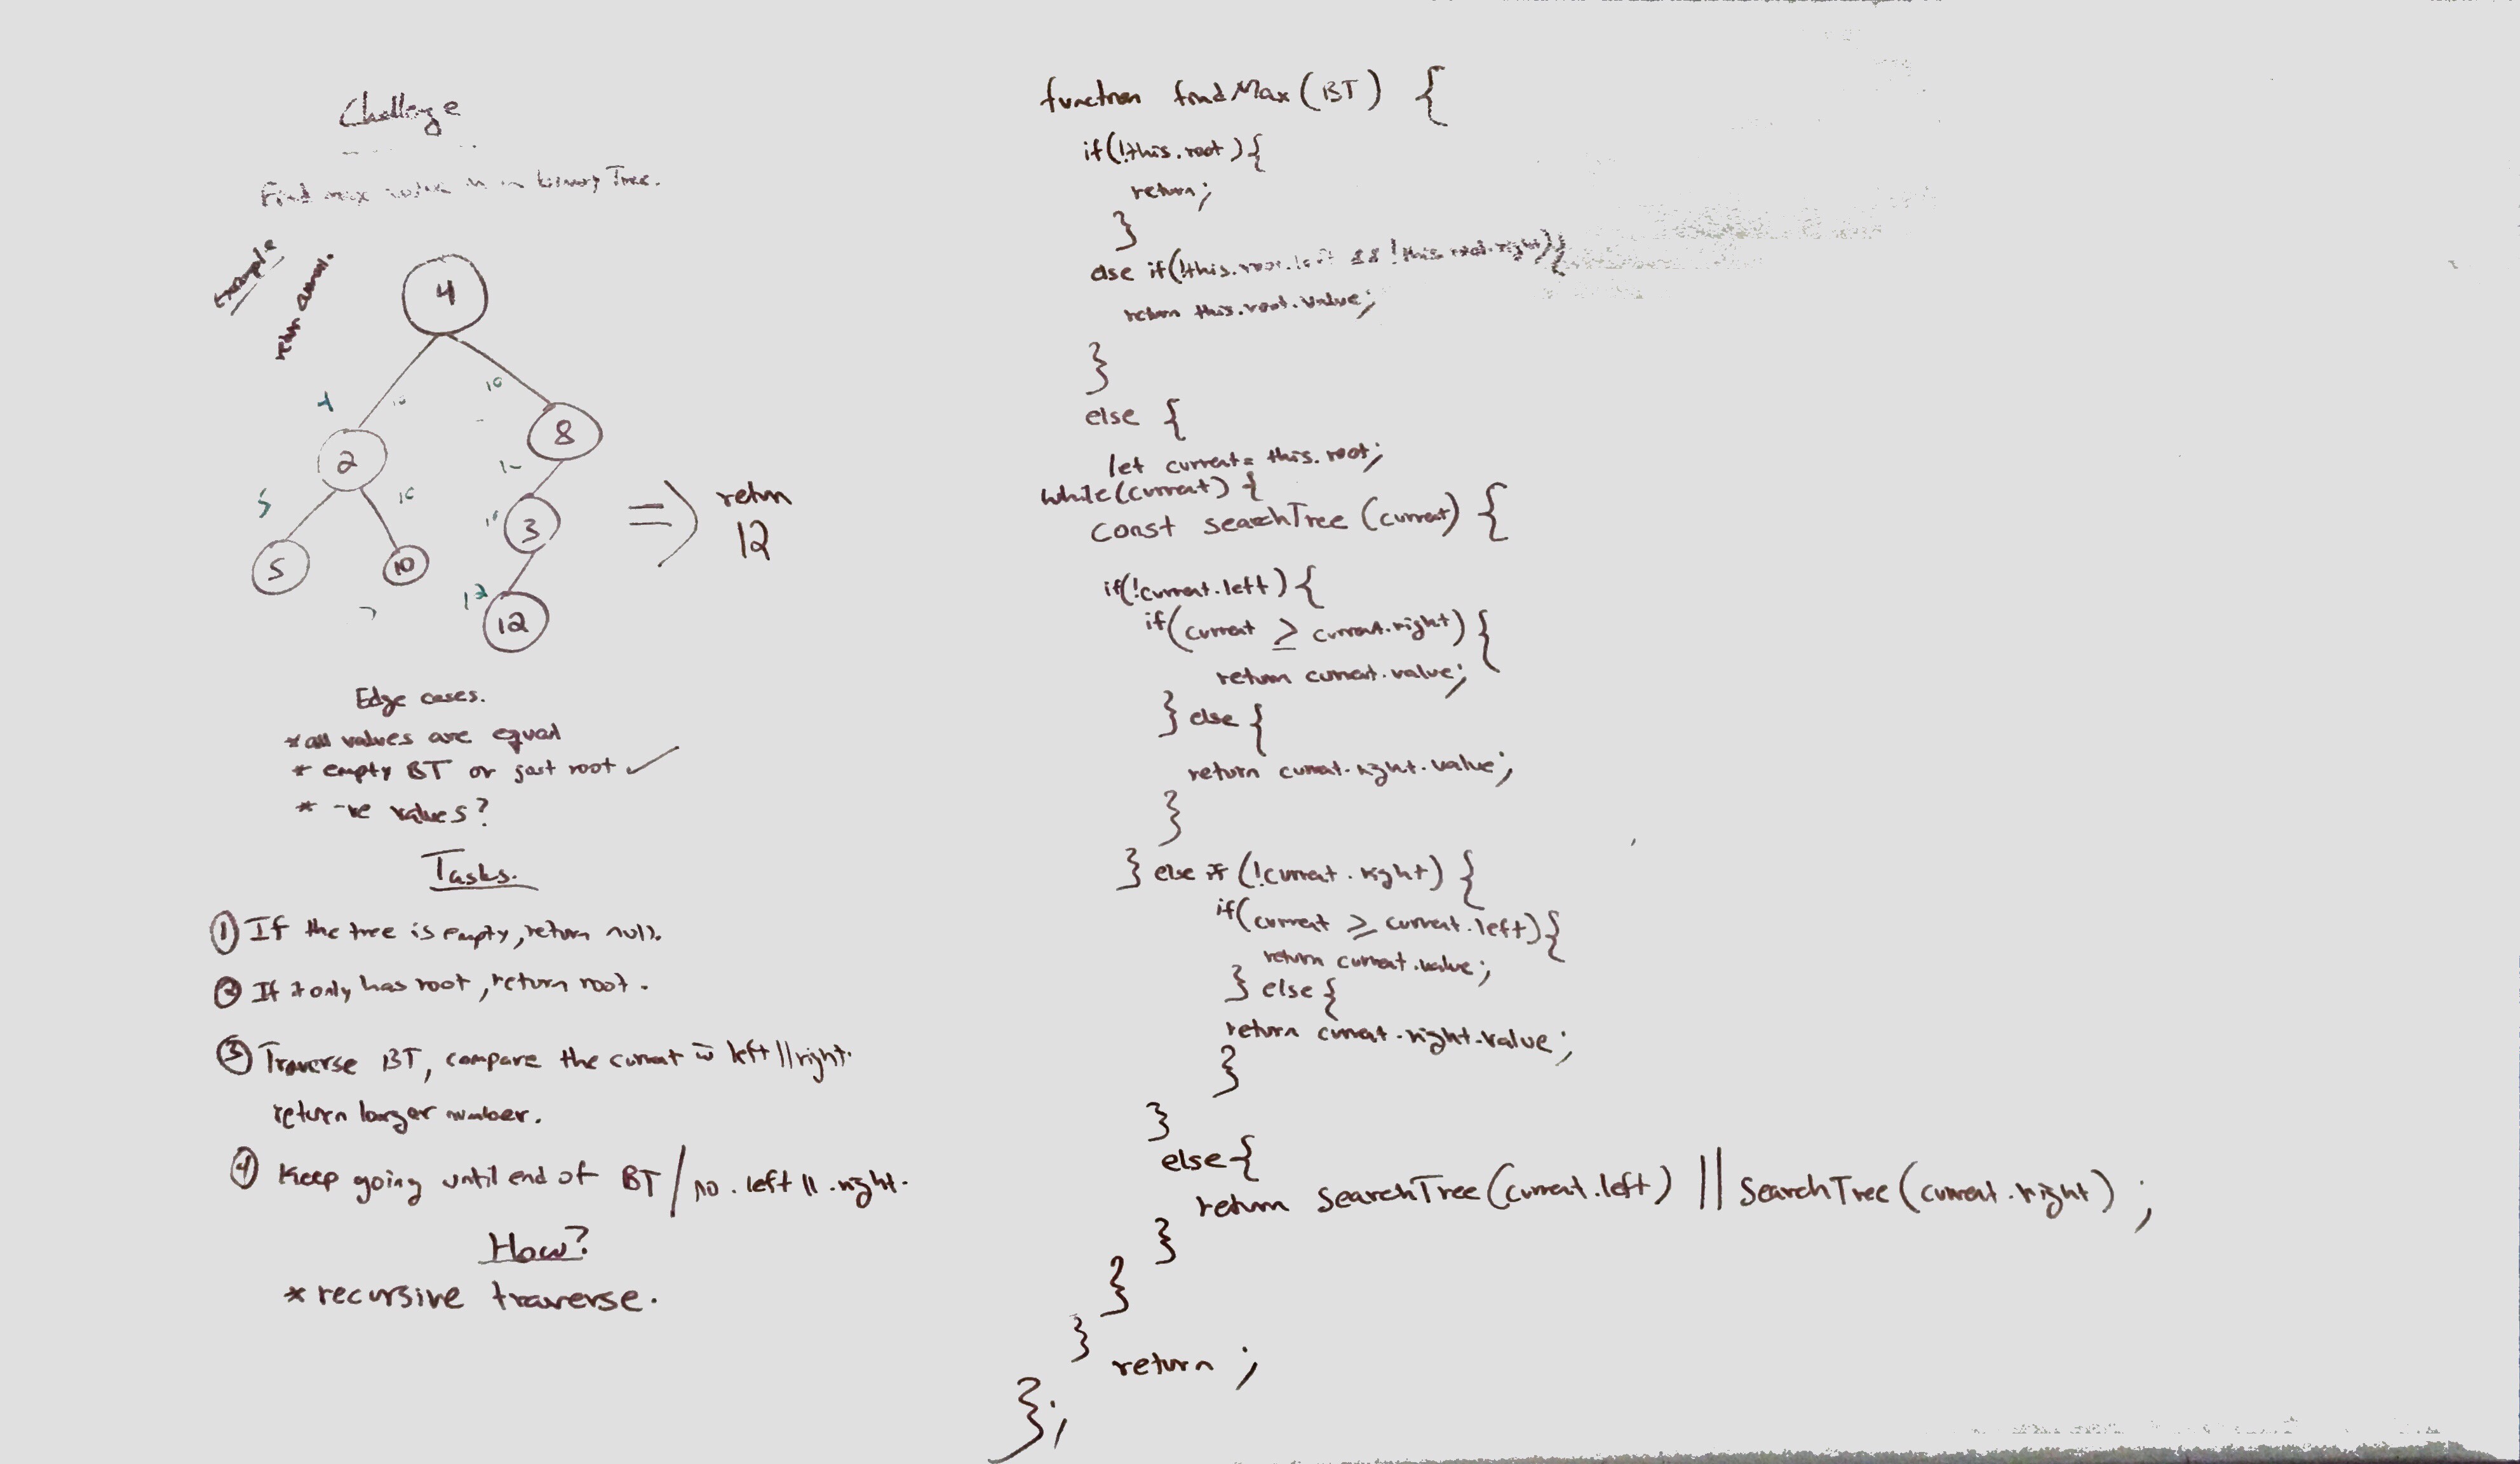 Challenge
Find max value in binary Tree.
Example
4
2
8
5
10
3
12
4
10
5
10
12
=> return
12
Edge cases.
* all values are equal
* empty BT or just root ✓
* -ve values?
Tasks.
① If the tree is empty, return null.
② If it only has root, return root.
③ Traverse BT, compare the current w̄ left || right.
return larger number.
④ Keep going until end of BT / no .left || .right.
How?
* recursive traverse.
function findMax (BT) {
if(!this.root){
return;
}
else if(!this.root.left && !this.root.right){
return this.root.value;
}
else {
let current = this.root;
while(current) {
const searchTree (current) {
if(!current.left) {
if(current ≥ current.right) {
return current.value;
} else {
return current.right.value;
}
} else if (!current.right) {
if(current ≥ current.left){
return current.value;
} else {
return current.right.value;
}
}
else {
return searchTree (current.left) || searchTree (current.right) ;
}
}
}
return ;
};